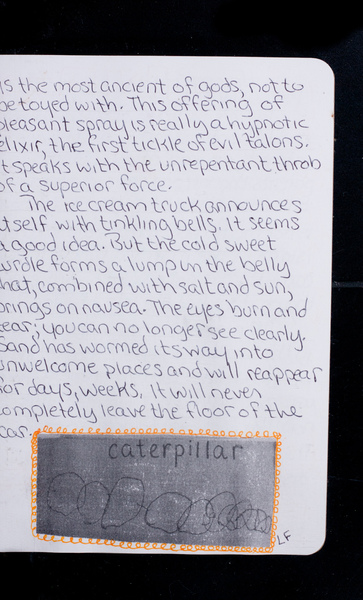 is the most ancient of gods, not to
be toyed with. This offering of
pleasant spray is really a hypnotic
elixir, the first tickle of evil talons.
It speaks with the unrepentant throb
of a superior force.
The ice cream truck announces
itself with tinkling bells. It seems
a good idea. But the cold sweet
curdle forms a lump in the belly
that, combined with salt and sun,
brings on nausea. The eyes burn and
tear; you can no longer see clearly.
Sand has wormed its way into
unwelcome places and will reappear
for days, weeks. It will never
completely leave the floor of the
car.
caterpillar
LF